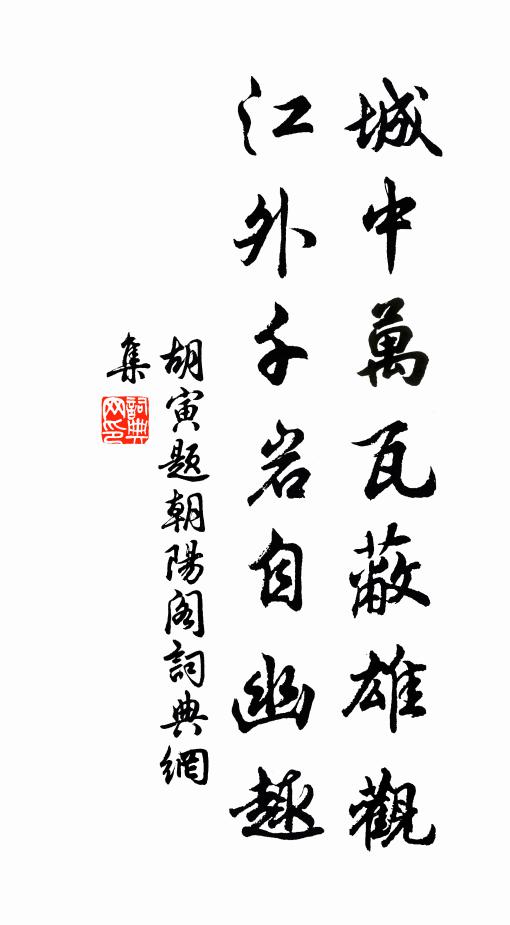 城中萬瓦蔽雄觀
江外千岩自幽趣
胡寅題朝陽閣詞典網
集
詞典
网印